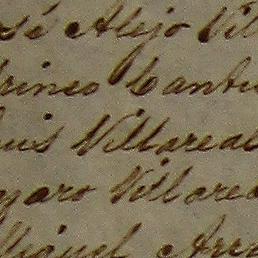 sé Alejo Vil
rineo Cantu
uis Villareal
zaro Villarea
Miguel Arre